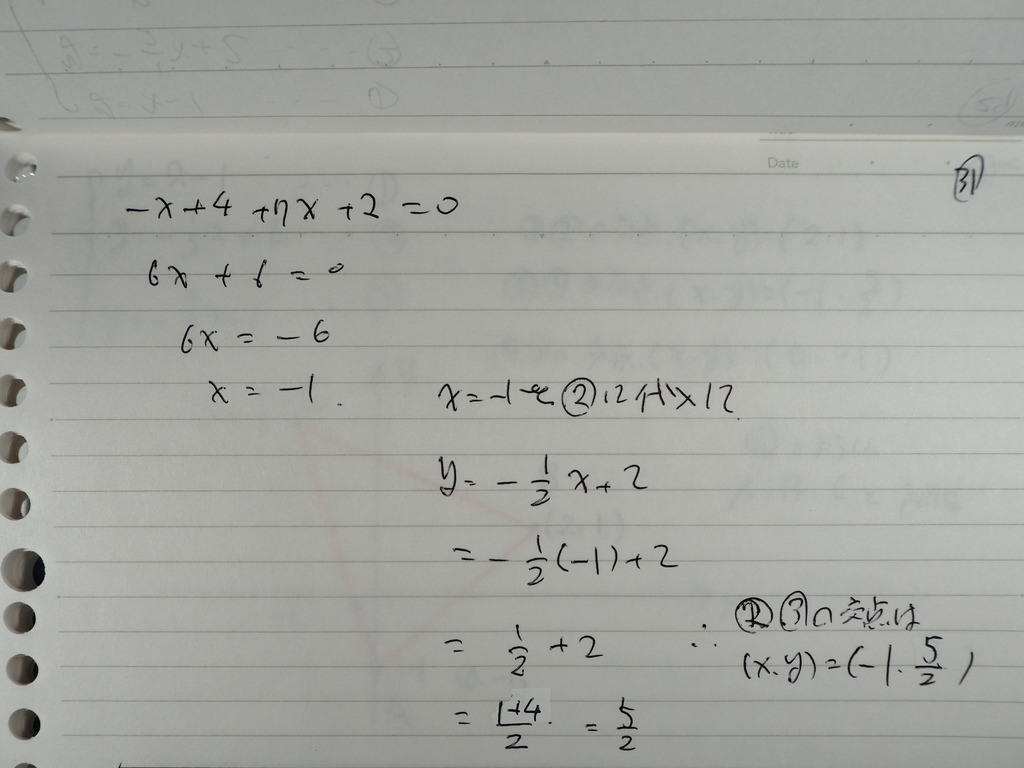 Date
31
-x+4+7x+2=0
6x+6=0
6x=-6
x=-1.
x=-1を②に代入して
y=-1/2x+2
=-1/2(-1)+2
=1/2+2
=1+4/2=5/2
∴②③の交点は
(x.y)=(-1.5/2)